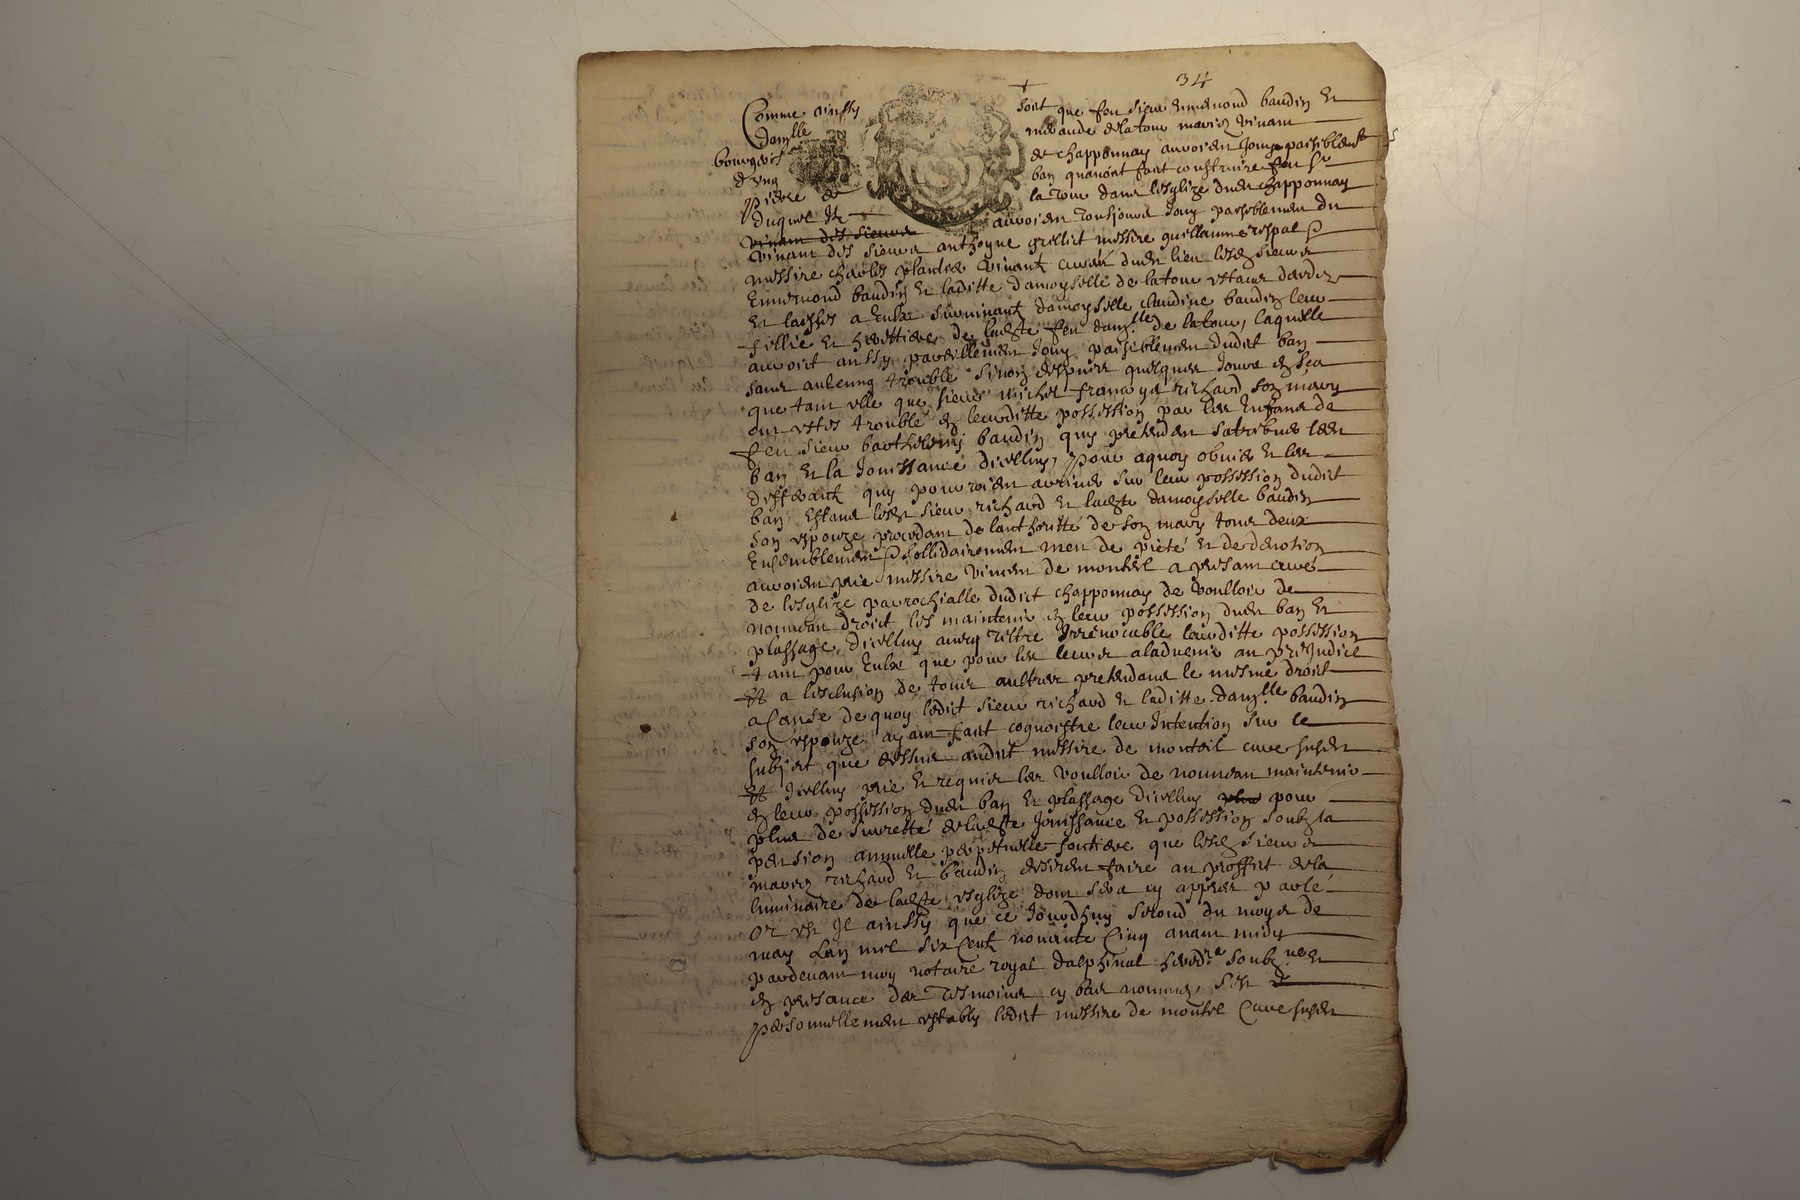 34
Comme ainssy soit que feu sieur Ennemond baudin Et
damlle meraude delatour mariez vivant
bourgeois de chapponnay avvoien Jouy paisiblemt
d'vng ban quavoit fait construire feu sr
pierre de la tour dans lesglize duet chapponnay
duquel Ilz auvoien tousjours Jouy paisiblemen du
vivant des sieurs
vivant des sieurs anthoyne grilliet messire guillaume respal &
messire charles plantier vivant curés duet lieu lesdz sieurs
Ennemond baudin Et laditte damoyselle de latour estans decedez
Et laissés a Eulx survivant damoyselle claudine baudin leur
fillie Et herettiere de ladte feu damlle de latour, laquelle
auvoit aussy pareillemen Jouy paisiblemen dudit ban
sans aulcung trouble sinon despuis quelques Jours en sea
que tant elle que sieur michel francoys richard son mary
ont estes troublé en leurditte possession par les Enfans de
feu sieur barthelemy baudin quy pretenden satribuer leet
ban Et la Jouissance dicelluy, pour a quoy obvier Et les
differant quy pourroien arriver sur leur possession dudit
ban Estans ledit sieur richard Et ladte damoyselle baudin
son espouze procedant de lauthoritté de son mary tous deux
Ensemblemen & sollidairemen meu de pieté Et de devotion
auvoien prie messire vincen de monteil a presant curé
de lesglize parrochialle dudict chapponnay de voulloir de
nouveau droit les maintenir en leur possession duet ban Et
plassage dicelluy avec tiltre Irrevocable leurditte possession
tant pour Eulx que pour les leurs aladvenir au prejudice
Et a lesclusion de tous aultres pretendans le mesme droit
a Cause de quoy ledit sieur richard Et laditte damlle baudin
son espouze ayant fait cognoistre leur Intention sur le
subject que dessus audit messire de monteil cure susdt
Et Icelluy prie Et requier les voulloir de nouveau maintenir
en leur possession duet ban Et plassage dicelluy plus pour
plus de surretté deladte Jouissance Et possession soubz la
pension annuelle perpetuelle fontiere que lesdz sieurs
mariez richard Et baudin desiren faire au proffit dela
luminaire de ladte esglize dont sera cy appres parlé
Or est Il ainssy que ce Jourdhuy second du moys de
may Lan mil six Cent nonante Cinq avant midy
pardevant moy notaire royal dalphinal heredre soubzne Et
en presance des tesmoins cy bas nommes, sest
personnellemen estably ledit messire de monteil Cure susdt